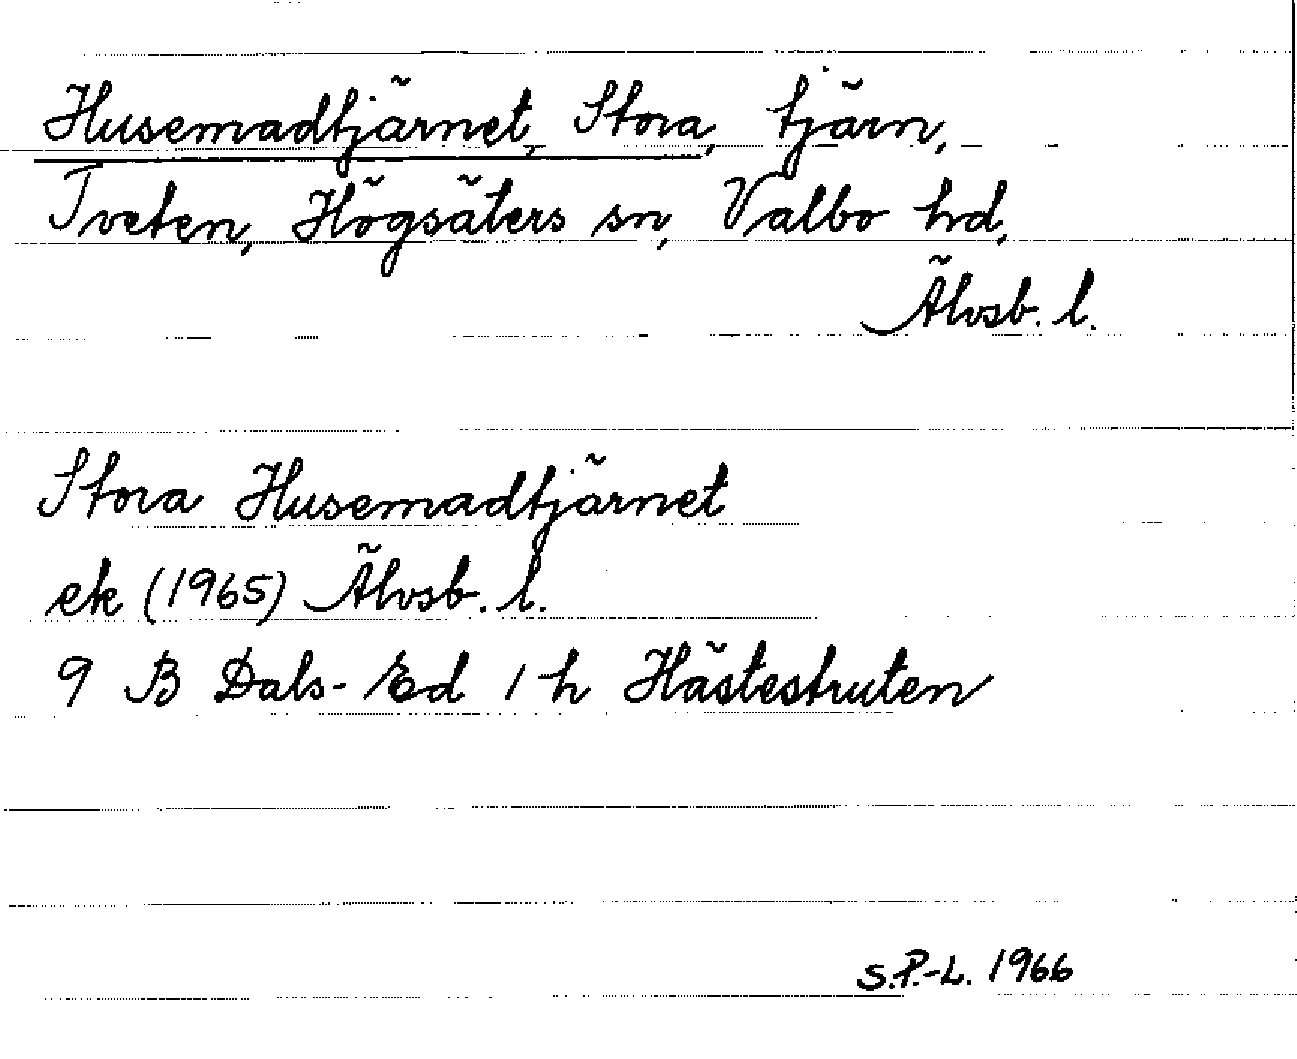 Husemadtjärnet, Stora, tjärn,
Tveten, Högsäters sn, Valbo hd,
Älvsb. l.
Stora Husemadtjärnet
ek (1965) Älvsb. l.
9 B Dals-Ed 1 h Hästestruten
S.P.-L. 1966